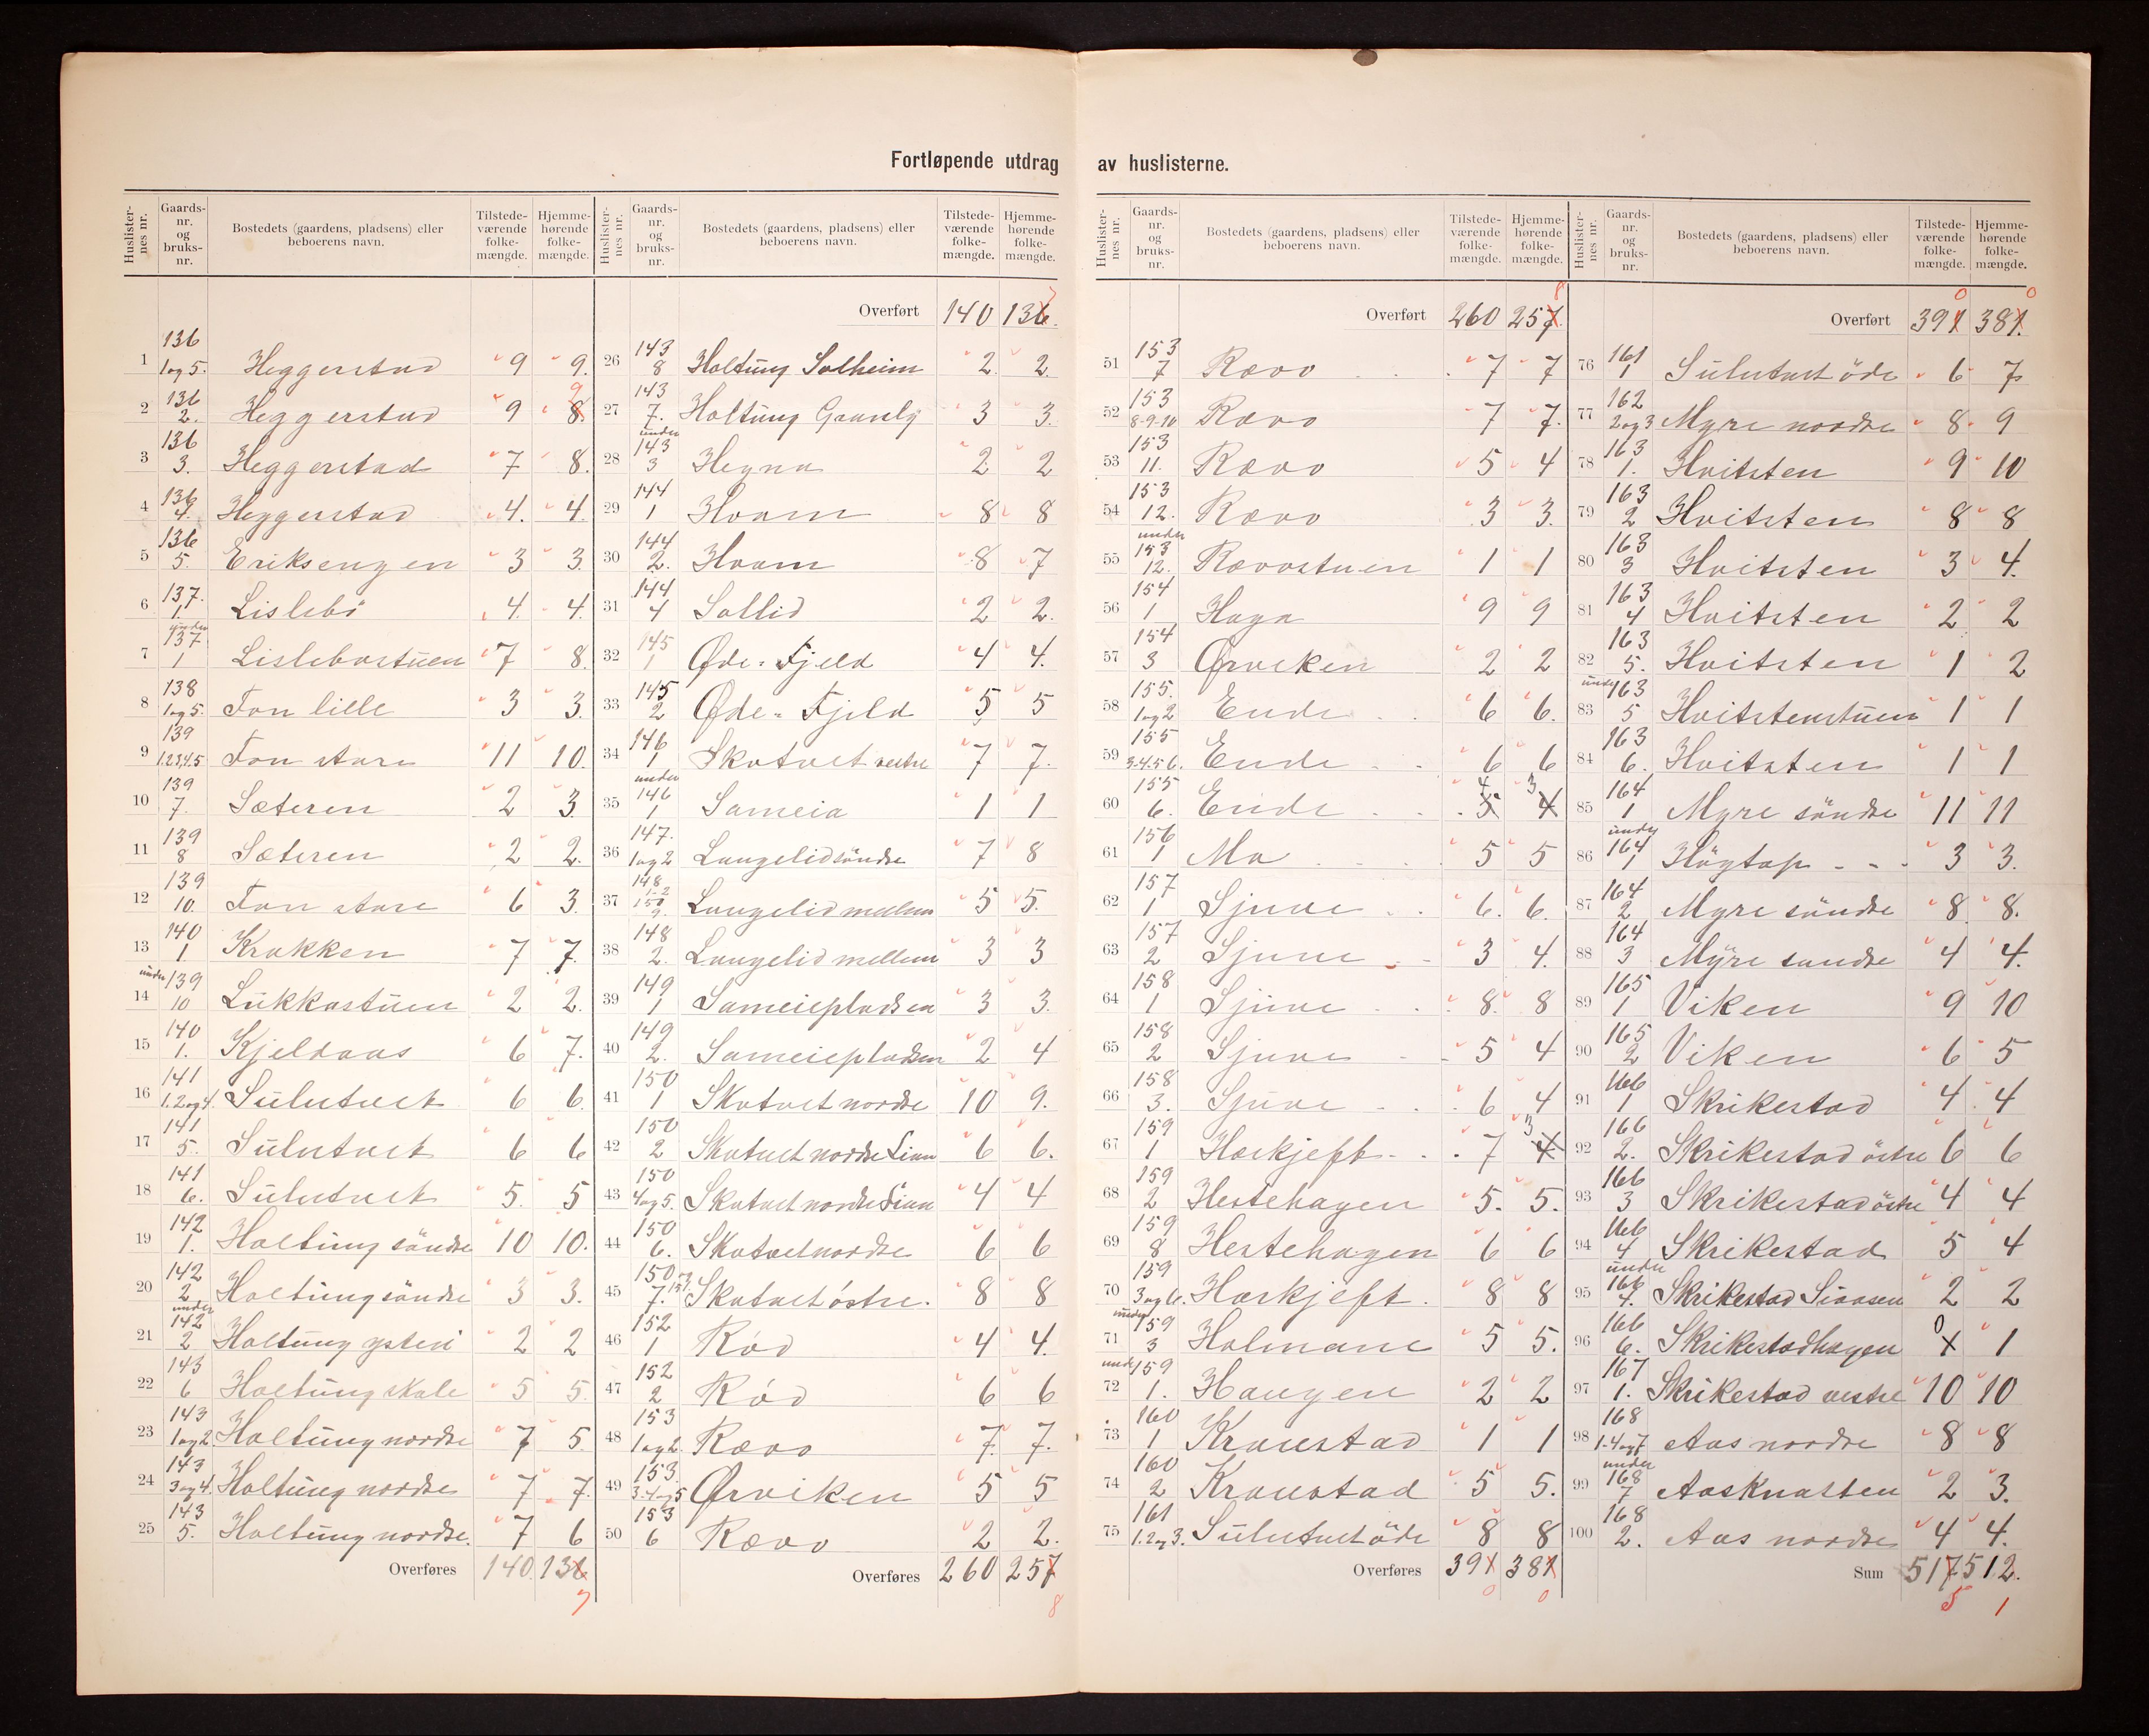 Fortløpende utdrag av huslisterne.
Huslisternes nr. | Gaardsnr. og bruksnr. | Bostedets (gaardens, pladsens) eller beboerens navn. | Tilstedeværende folkemængde. | Hjemmehørende folkemængde.
1 | 136 1 og 5. | Heggerstad | 9 | 9.
2 | 136 2. | Heggerstad | 9 | 8. 9
3 | 136 3. | Heggerstad | 7 | 8.
4 | 136 4. | Heggerstad | 4. | 4.
5 | 136 5. | Eriksengen | 3 | 3.
6 | 137. 1. | Lislebö | 4. | 4.
7 | under 137 1 | Lislebostuen | 7 | 8.
8 | 138 1 og 5. | Fon lille | 3 | 3.
9 | 139 1.2.3.4.5 | Fon store | 11 | 10.
10 | 139 7. | Sæteren | 2 | 3.
11 | 139 8 | Sæteren | 2 | 2.
12 | 139 10. | Fon store | 6 | 3.
13 | 140 1. | Krakken | 7 | 7.
14 | under 139 10 | Lukkastuen | 2 | 2.
15 | 140 1. | Kjeldaas | 6 | 7.
16 | 141 1. 2 og 4. | Sulutvet | 6 | 6.
17 | 141 5. | Sulutvet | 6 | 6
18 | 141 6. | Sulutvet | 5. | 5
19 | 142 1. | Holtung söndre | 10 | 10.
20 | 142 2 | Holtung söndre | 3 | 3.
21 | under 142 2 | Holtung ysteri | 2 | 2
22 | 143 6 | Holtung skole | 5 | 5.
23 | 143 1 og 2. | Holtung nordre | 7 | 5
24 | 143 3 og 4. | Holtung nordre | 7 | 7.
25 | 143 5. | Holtung nordre. | 7 | 6
Overføres 140. 136 7
Huslisternes nr. | Gaardsnr. og bruksnr. | Bostedets (gaardens, pladsens) eller beboerens navn. | Tilstedeværende folkemængde. | Hjemmehørende folkemængde.
Overført 140 136. 7
26 | 143 8 | Holtung Solheim | 2. | 2.
27 | 143 7. | Holtung | 3 | 3.
28 | under 143 3 | Hegna | 2 | 2
29 | 144 1 | Hvam | 8 | 8
30 | 144 2. | Hvam | 8 | 7
31 | 144 4 | Sollid | 2 | 2.
32 | 145 1 | Øde-Fjeld | 4 | 4.
33 | 145 2 | Øde-Fjeld | 5 | 5
34 | 146 1 | Skatvet vestre | 7 | 7.
35 | under 146 1 | Sameia | 1 | 1
36 | 147. 1 og 2 | Langelid söndre | 7 | 8
37 | 148 1-2 150 9. | Langelid mellem | 5 | 5.
38 | 148 2. | Langelid mellem | 3 | 3
39 | 149 1 | Sameiepladsen | 3 | 3.
40 | 149 2. | Sameiepladsen | 2 | 4
41 | 150 1 | Skatvet nordre | 10 | 9.
42 | 150 2 | Skatvet nordre Lian | 6 | 6.
43 | 150 4 og 5. | Skatvet nordre Lian | 4 | 4
44 | 150 6. | Skatvet nordre | 6 | 6
45 | 150 7. | Skatvet östre. | 8 | 8
46 | 152 1 | Röd | 4 | 4.
47 | 152 2 | Röd | 6 | 6
48 | 153 1 og 2 | Rævo | 7. | 7.
49 | 153. 3-4 og 5 | Ørviken | 5 | 5
50 | 153 6 | Rævo | 2 | 2.
Overføres 260 257 8
Huslisternes nr. | Gaardsnr. og bruksnr. | Bostedets (gaardens, pladsens) eller beboerens navn. | Tilstedeværende folkemængde. | Hjemmehørende folkemængde.
Overført 260 257 8
51 | 153 7 | Rævo | 7 | 7
52 | 153 8-9-10 | Rævo | 7 | 7.
53 | 153 11. | Rævo | 5 | 4
54 | 153 12. | Rævo | 3 | 3.
55 | under 153 12. | Rævostuen | 1 | 1
56 | 154 1 | Haga | 9 | 9
57 | 154 3 | Ørviken | 2 | 2
58 | 155. 1 og 2 | Ende | 6 | 6.
59 | 155 3-4.5 6. | Ende | 6 | 6
60 | 155 6. | Ende | 5 4 | 4 3
61 | 156 1 | Mo | 5 | 5
62 | 157 1 | Sjuve | 6. | 6.
63 | 157 2 | Sjuve | 3 | 4.
64 | 158 1 | Sjuve | 8. | 8
65 | 158 2 | Sjuve | 5 | 4
66 | 158 3. | Sjuve | 6 | 4
67 | 159 1 | Haskjeft | 7 | 4 3
68 | 159 2 | Hestehagen | 5. | 5.
69 | 159 8 | Hestehagen | 6 | 6
70 | 159 3 og 6. | Haskjeft. | 8 | 8
71 | under 159 3 | Holmane | 5 | 5.
72 | under 159 1. | Haugen | 2 | 2
73 | 160 1 | Kravstad | 1 | 1
74 | 160 2 | Kravstad | 5 | 5.
75 | 161 1. 2 og 3. | Sulutvet öde | 8 | 8
Overføres 391 0 381 0
Huslisternes nr. | Gaardsnr. og bruksnr. | Bostedets (gaardens, pladsens) eller beboerens navn. | Tilstedeværende folkemængde. | Hjemmehørende folkemængde.
Overført 391 0 381. 0
76 | 161 1 | Sulutvet öde | 6 | 7
77 | 162 2 og 3 | Myre nordre | 8 | 9
78 | 163 1. | Hvitsten | 9 | 10
79 | 163 2 | Hvitsten | 8 | 8
80 | 163 3 | Hvitsten | 3 | 4.
81 | 163 4 | Hvitsten | 2 | 2
82 | 163 5. | Hvitsten | 1 | 2
83 | under 163 5 | Hvitstenstuen | 1 | 1
84 | 163 6. | Hvitsten | 1 | 1
85 | 164 1 | Myre söndre | 11 | 11
86 | under 164 1 | Högtop | 3 | 3.
87 | 164 2 | Myre söndre | 8 | 8.
88 | 164 3 | Myre sondre | 4 | 4.
89 | 165 1 | Viken | 9 | 10
90 | 165 2 | Viken | 6 | 5
91 | 166 1 | Skrikestad | 4 | 4
92 | 166 2. | Skrikestad östre | 6 | 6
93 | 166 3 | Skrikestad östre | 4 | 4
94 | 166 4 | Skrikestad | 5 | 4
95 | under 166 4. | Skrikestad | 2 | 2
96 | 166 6. | Skrikestadhagen | 0 | 1
97 | 167 1. | Skrikestad vestre | 10 | 10
98 | 168 1-4 og 7 | Aas nordre | 8 | 8
99 | under 168 7 | Aasknatten | 2 | 3.
100 | 168 2. | Aas nordre | 4 | 4.
Sum 517 5 512. 1